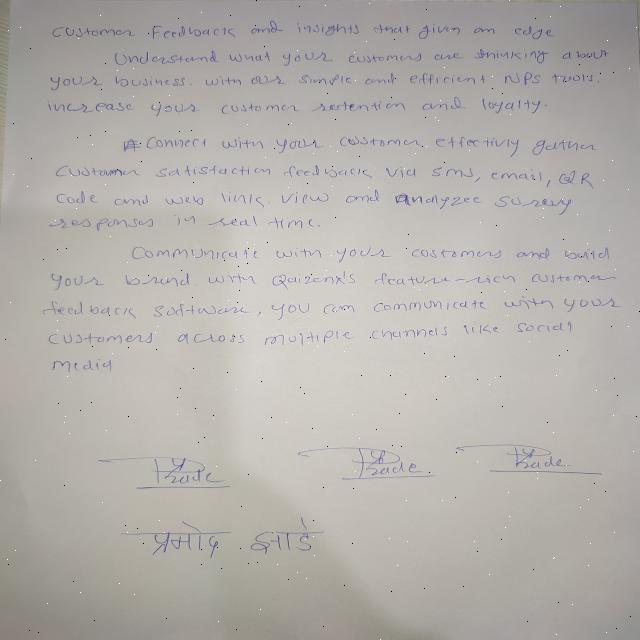 Customer Feedback and insights that given an edge
Understand what your customers are thinking about
your business. with our simple and efficient NPS tools.
increase your customer retention and loyalty.
Connect with your customer effectivly gather
Customer satisfaction feedback via sms, email, QR
Code and web link. View and analyzee survey
responses in real time.
Communicate with your costomers and build
your brand with Qaizenx's feature-rich customer
feedback software, you can communicate with your
customers across multiple channels like social
media
प्रमोद झाडे